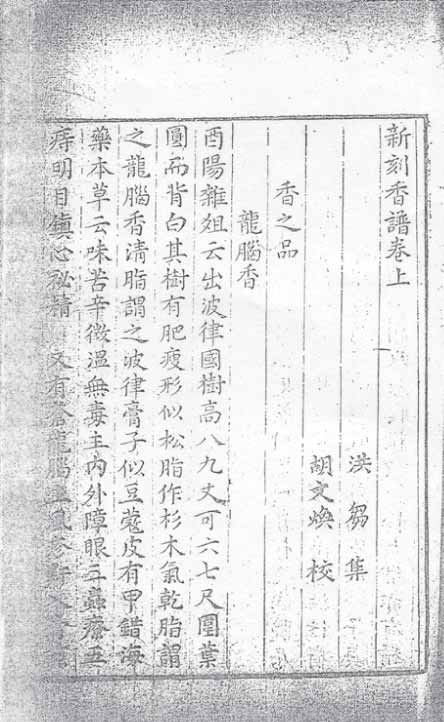 新刻香譜卷上
洪芻集
胡文煥校
香之品
龍腦香
酉陽雜俎云出波律國樹高八九丈可六七尺圍葉
圓而背白其樹有肥瘦形似松脂作杉木氣乾脂謂
之龍腦香清脂謂之波律膏子似豆蔻皮有甲錯海
藥本草云味苦辛微溫無毒主內外障眼三蟲療五
痔明目鎮心祕精 又有蒼龍腦主風